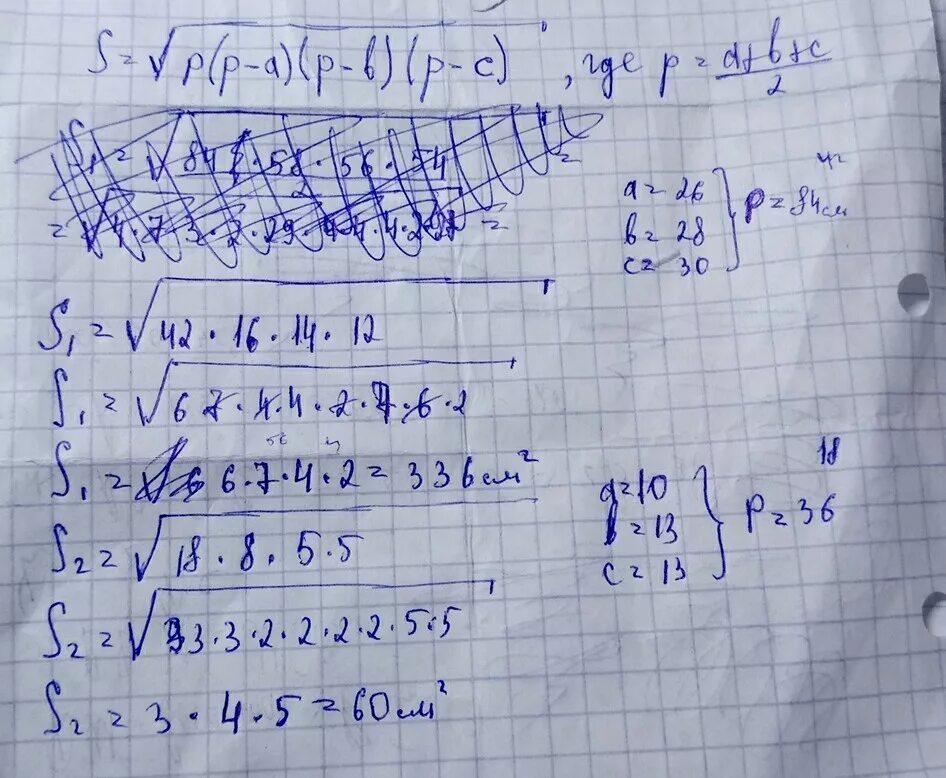 S = √p(p-a)(p-b)(p-c) , где p = a+b+c/2
a = 26
b = 28
c = 30
42
P = 84 см
S₁ = √42 · 16 · 14 · 12
S₁ = √6 · 7 · 4 · 4 · 2 · 7 · 6 · 2
S₁ = 6 · 7 · 4 · 2 = 336 см²
a = 10
b = 13
c = 13
18
P = 36
S₂ = √18 · 8 · 5 · 5
S₂ = √3 · 3 · 2 · 2 · 2 · 2 · 5 · 5
S₂ = 3 · 4 · 5 = 60 см²